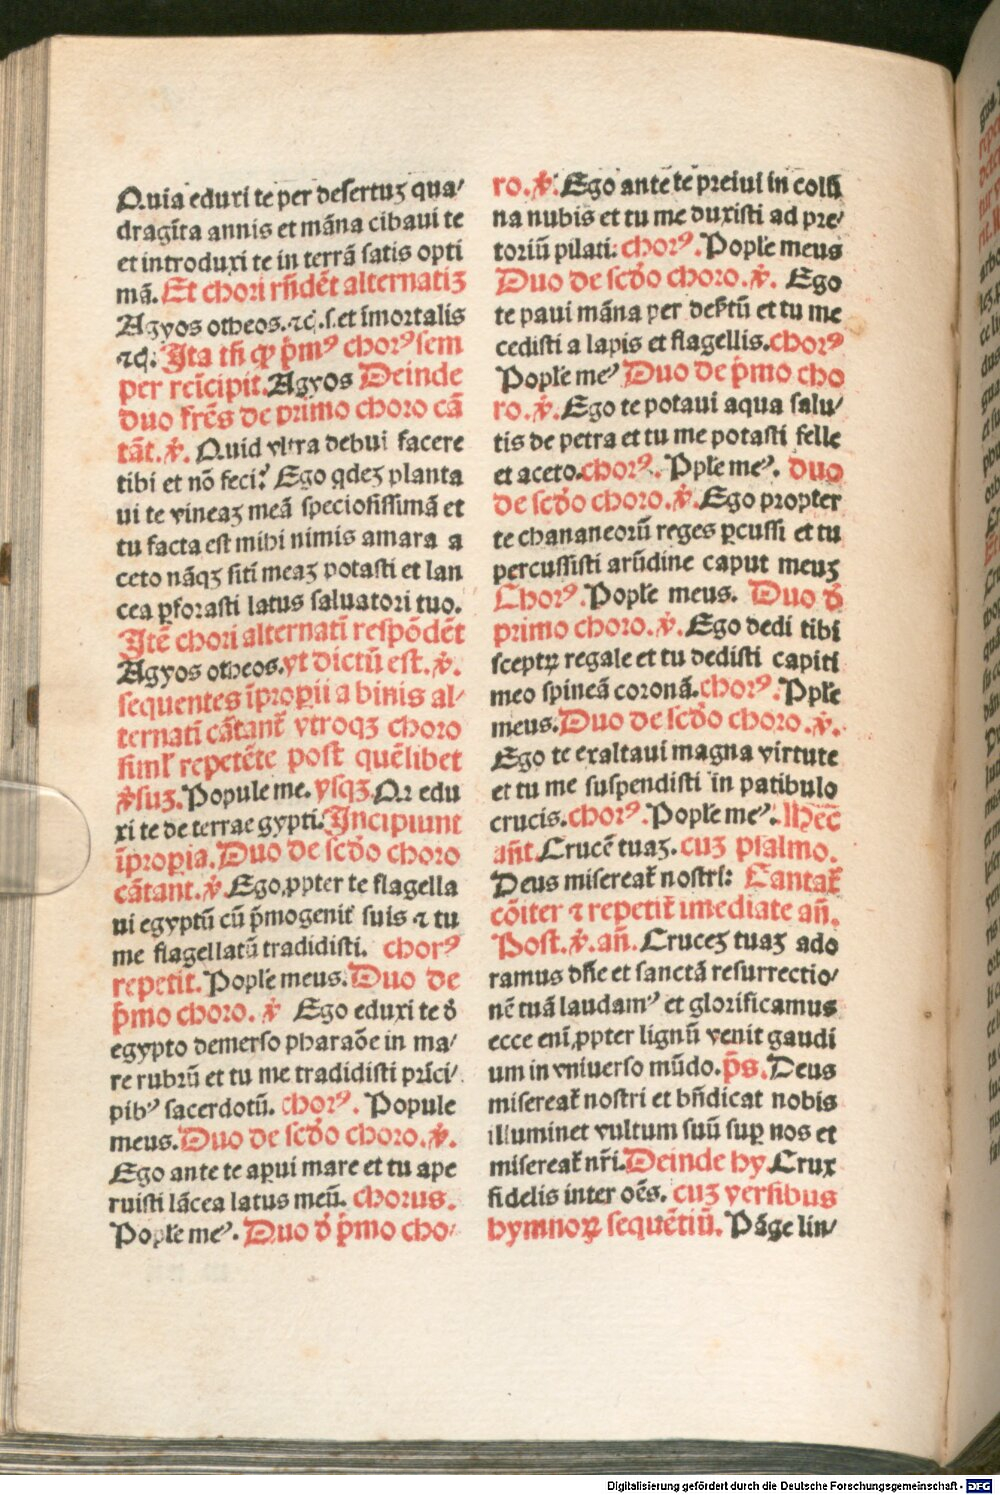 Quia eduxi te per desertuʒ qua⸗
dragīta annis et māna cibaui te
et introduxi te in terrā satis opti
mā. Et chori rn̄dēt alternatiʒ
Agyos otheos. ⁊c̄. s. et īmortalis
⁊c̄. Ita tn̄ ꝙ p̄mꝰ chorꝰ sem
per reīcipit. Agyos Deinde
duo fr̄es de primo choro cā
tāt. ꝟ. Quid vltra debui facere
tibi et nō feci? Ego qdeʒ planta
ui te vineaʒ meā speciosissimā et
tu facta est mihi nimis amara a
ceto nāqʒ sitī meaʒ potasti et lan
cea ꝑforasti latus saluatori tuo.
Itē chori alternatī respōdēt
Agyos otheos. vt dictū est. ꝟ.
sequentes īproꝑii a binis al⸗
ternatī cātant̄ vtroqʒ choro
simĺr repetēte post quēlibet
ꝟsuʒ. Popule me. vsqʒ. Qr edu
xi te de terra egypti. Incipiunt
īproꝑia. Duo de scd̄o choro
cātant. ꝟ. Ego ꝓpter te flagella
ui egyptū cū p̄mogenit̄ suis ⁊ tu
me flagellatū tradidisti. chorꝰ
repetit. Popĺe meus. Duo de
p̄mo choro. ꝟ Ego eduxi te d̄
egypto demerso pharaōe in ma⸗
re rubrū et tu me tradidisti prīci⸗
pibꝰ sacerdotū. chorꝰ. Popule
meus. Duo de scd̄o choro. ꝟ.
Ego ante te aꝑui mare et tu ape
ruisti lācea latus meū. Chorus.
Popĺe meꝰ. Duo d̄ p̄mo cho⸗
ro. ꝟ. Ego ante te preiui in colū
na nubis et tu me duxisti ad pre⸗
toriū pilati: chorꝰ. Popĺe meus
Duo de scd̄o choro. ꝟ. Ego
te paui māna per deẜtū et tu me
cedisti alapis et flagellis. chorꝰ
Popĺe meꝰ Duo de p̄mo cho
ro. ꝟ. Ego te potaui aqua salu⸗
tis de petra et tu me potasti felle
et aceto. chorꝰ. Ppĺe meꝰ. duo
de scd̄o choro. ꝟ. Ego propter
te chananeorū reges ꝑcussi et tu
percussisti arūdine caput meuʒ
Chorꝰ. Popĺe meus. Duo d̄
primo choro. ꝟ. Ego dedi tibi
sceptꝝ regale et tu dedisti capiti
meo spineā coronā. chorꝰ. Ppĺe
meus. Duo de scd̄o choro. ꝟ.
Ego te exaltaui magna virtute
et tu me suspendisti in patibulo
crucis. chorꝰ. Popĺe meꝰ. Ihec̄
an̄t. Crucē tuaʒ. cuʒ psalmo.
Deus misereat̄ nostri: Cantat̄
cōiter ⁊ repetit̄ imediate an̄.
Post. ꝟ. an̄. Cruceʒ tuaʒ ado
ramus dn̄e et sanctā resurrectio⸗
nē tuā laudamꝰ et glorificamus
ecce enī ꝓpter lignū venit gaudi
um in vniuerso mūdo. p̄s. Deus
misereat̄ nostri et bn̄dicat nobis
illuminet vultum suū suꝑ nos et
misereat̄ nr̄i. Deinde hy. Crux
fidelis inter oēs. cuʒ versibus
hymnoꝝ sequētiū. Pāge lin⸗
Digitalisierung gefördert durch die Deutsche Forschungsgemeinschaft - DFG